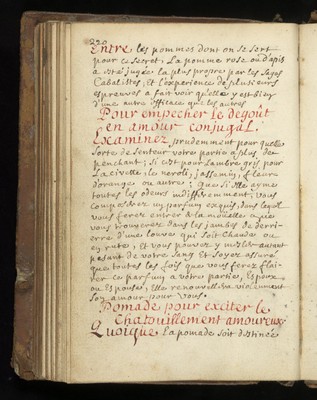 220
Entre les pommes dont on se sert
pour ce Secret, La pomme rose ou d'apis
a esté jugée la plus propre par les Sages
Cabalistes, et l'experience de plusieurs
espreuves a fait voir qu'elle y est bien
d'une autre efficace que les autres
Pour empecher le degoût
en amour conjugal.
Examinez prudemment pour quelle
Sorte de Senteur votre partie a plus de
penchant; Si c'est pour l'ambre gris, pour
La Civette, le neroli, jassemin, fleur
d'orange ou autre: Que Si Elle ayme
toutes les odeurs indifferemment, Vous
Composerez un parfum exquis, dans lequel
vous ferez entrer de la moüelle que
vous trouverez dans les jambes de derri-
erre d'une louve qui Soit Chaude ou
en rute, Et vous pouvez y mesler autant
pesant de votre Sang Et Soyez assuré
que toutes les fois que vous ferez flai-
rer ce parfum a votre partie, Espoux
ou Espouse, Elle renouvellera violemment
Son amour pour Vous.
Pomade pour exciter le
Chatouillement amoureux.
Quoique la pomade Soit distincte